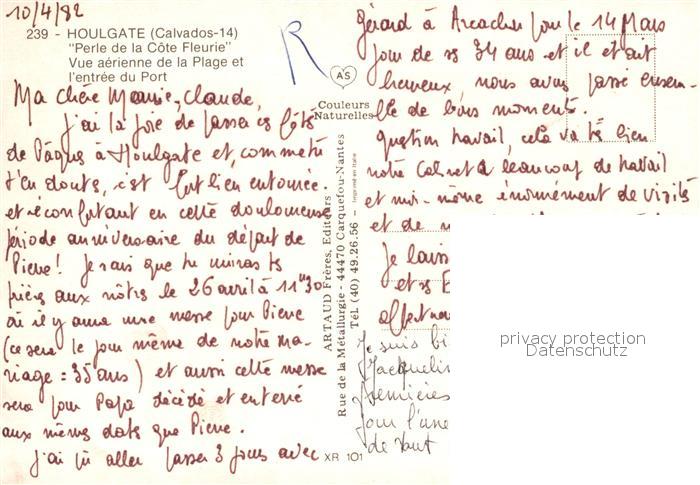 10/4/82
239 - HOULGATE (Calvados-14)
"Perle de la Côte Fleurie"
Vue aérienne de la Plage et
l'entrée du Port
R
AS
Couleurs
Naturelles
Ma chère Mamie, Claude,
J'ai la joie de passer ces fêtes
de Pâques à Houlgate et, comme tu
t'en doutes, c'est fort bien entourée.
et réconfortant en cette douloureuse
période anniversaire du départ de
Pierre! Je sais que tu uniras tes
prières aux nôtres le 26 avril à 11h30
où il y aura une messe pour Pierre
(ce sera le jour même de notre ma-
riage : 35 ans) et aussi cette messe
sera pour Papa décédé et enterré
aux mêmes dates que Pierre.
J'ai pu aller passer 3 jours avec
ARTAUD Frères, Editeurs
Rue de la Métallurgie - 44470 Carquefou-Nantes
Tél. (40) 49.26.56 - Imprimé en Italie
XR 101
Gérard à Arcachon pour le 14 Mars
jour de ses 34 ans et il était
heureux, nous avons passé ensem-
ble de bons moments.
Question travail, cela va très bien
notre Cabinet a beaucoup de travail
et moi-même énormément de visites
et de
Je laiss
et ses
affectueu
Je suis bi
Jacqueline
premières
pour l'une
de tout
privacy protection
Datenschutz